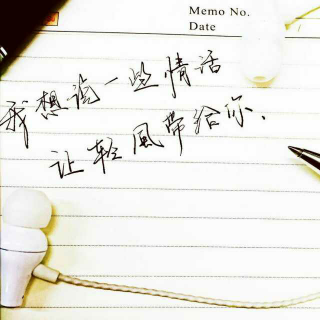 Memo No.
Date
我想说一些情话
让轻风带给你.